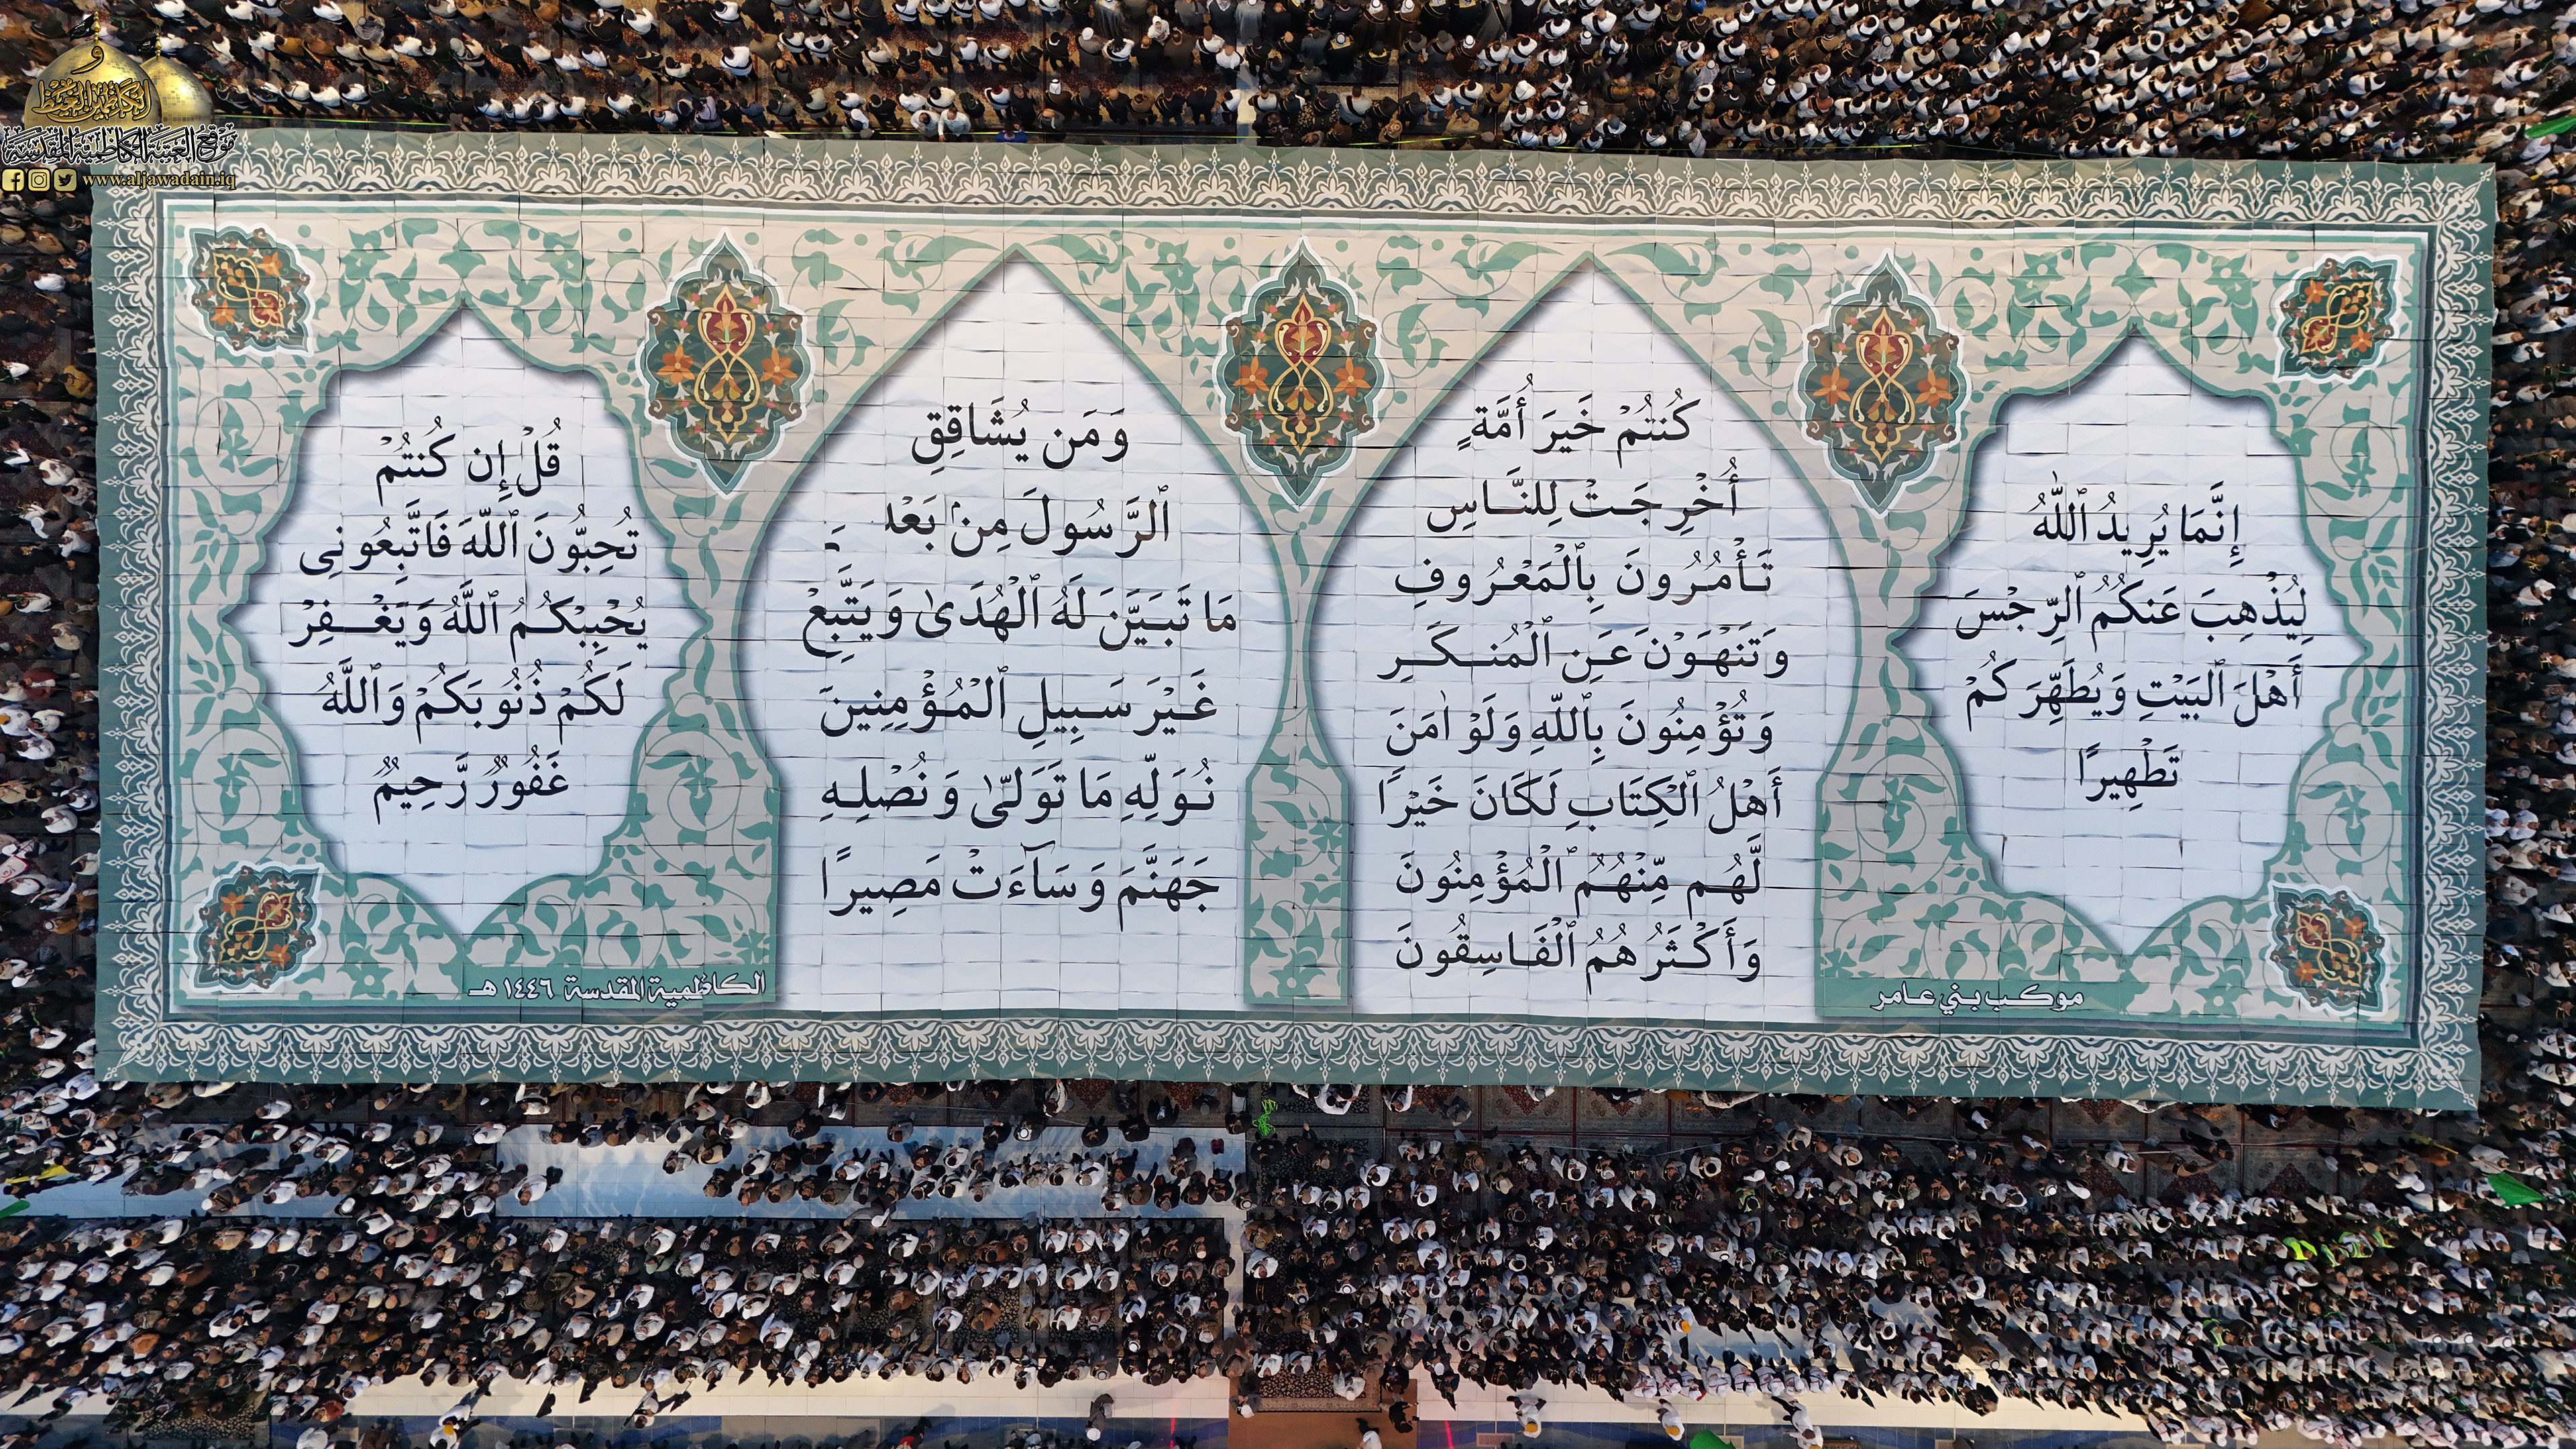 إِنَّمَا يُرِيدُ ٱللَّهُ
لِيُذْهِبَ عَنكُمُ ٱلرِّجْسَ
أَهْلَ ٱلبَيْتِ وَيُطَهِّرَكُمْ
تَطْهِيرًا
كُنتُمْ خَيرَ أُمَّةٍ
أُخْرِجَتْ لِلنَّاسِ
تَأْمُرُونَ بِٱلْمَعْرُوفِ
وَتَنْهَوْنَ عَنِ ٱلْمُنكَرِ
وَتُؤْمِنُونَ بِٱللَّهِ وَلَوْ اٰمَنَ
أَهْلُ ٱلْكِتَابِ لَكَانَ خَيْرًا
لَّهُم مِّنْهُمُ ٱلْمُؤْمِنُونَ
وَأَكْثَرُهُمُ ٱلْفَاسِقُونَ
وَمَن يُشَاقِقِ
ٱلرَّسُولَ مِنۢ بَعْدِ
مَا تَبَيَّنَ لَهُ ٱلْهُدَىٰ وَيَتَّبِعْ
غَيْرَ سَبِيلِ ٱلْمُؤْمِنِينَ
نُوَلِّهِ مَا تَوَلَّىٰ وَنُصْلِهِ
جَهَنَّمَ وَسَآءَتْ مَصِيرًا
قُلْ إِن كُنتُمْ
تُحِبُّونَ ٱللَّهَ فَاتَّبِعُونِى
يُحْبِبْكُمُ ٱللَّهُ وَيَغْفِرْ
لَكُمْ ذُنُوبَكُمْ وَٱللَّهُ
غَفُورٌ رَّحِيمٌ
موكب بني عامر
الكاظمية المقدسة ١٤٤٦ هـ
موقع العتبة الكاظمية المقدسة
www.aljawadain.iq